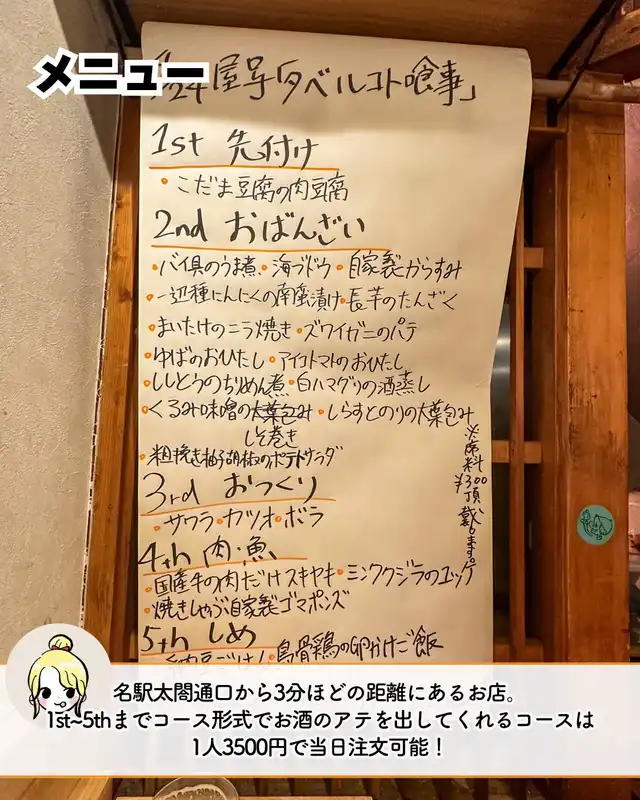 メニュー
1/24 屋号「タベルコト喰事」
1st 先付け
・こだま豆腐の肉豆腐
2nd おばんざい
・バイ貝のうま煮・海ブドウ・自家製からすみ
・一辺種にんにくの南蛮漬け・長芋のたんざく
・まいたけのニラ焼き・ズワイガニのパテ
・ゆばのおひたし・アイコトマトのおひたし
・ししとうのちりめん煮・白ハマグリの酒蒸し
・くるみ味噌の大葉包み・しらすとのりの大葉包み
しそ巻き
・粗挽き柚子胡椒のポテトサラダ
※席料¥300頂戴します。
3rd おつくり
・サワラ・カツオ・ボラ
4th 肉・魚
・国産牛の肉だけスキヤキ・ミンククジラのユッケ
・焼きしゃぶ自家製ゴマポンズ
5th しめ
・納豆ごはん・烏骨鶏の卵かけご飯
名駅太閤通口から3分ほどの距離にあるお店。
1st~5thまでコース形式でお酒のアテを出してくれるコースは
1人3500円で当日注文可能！